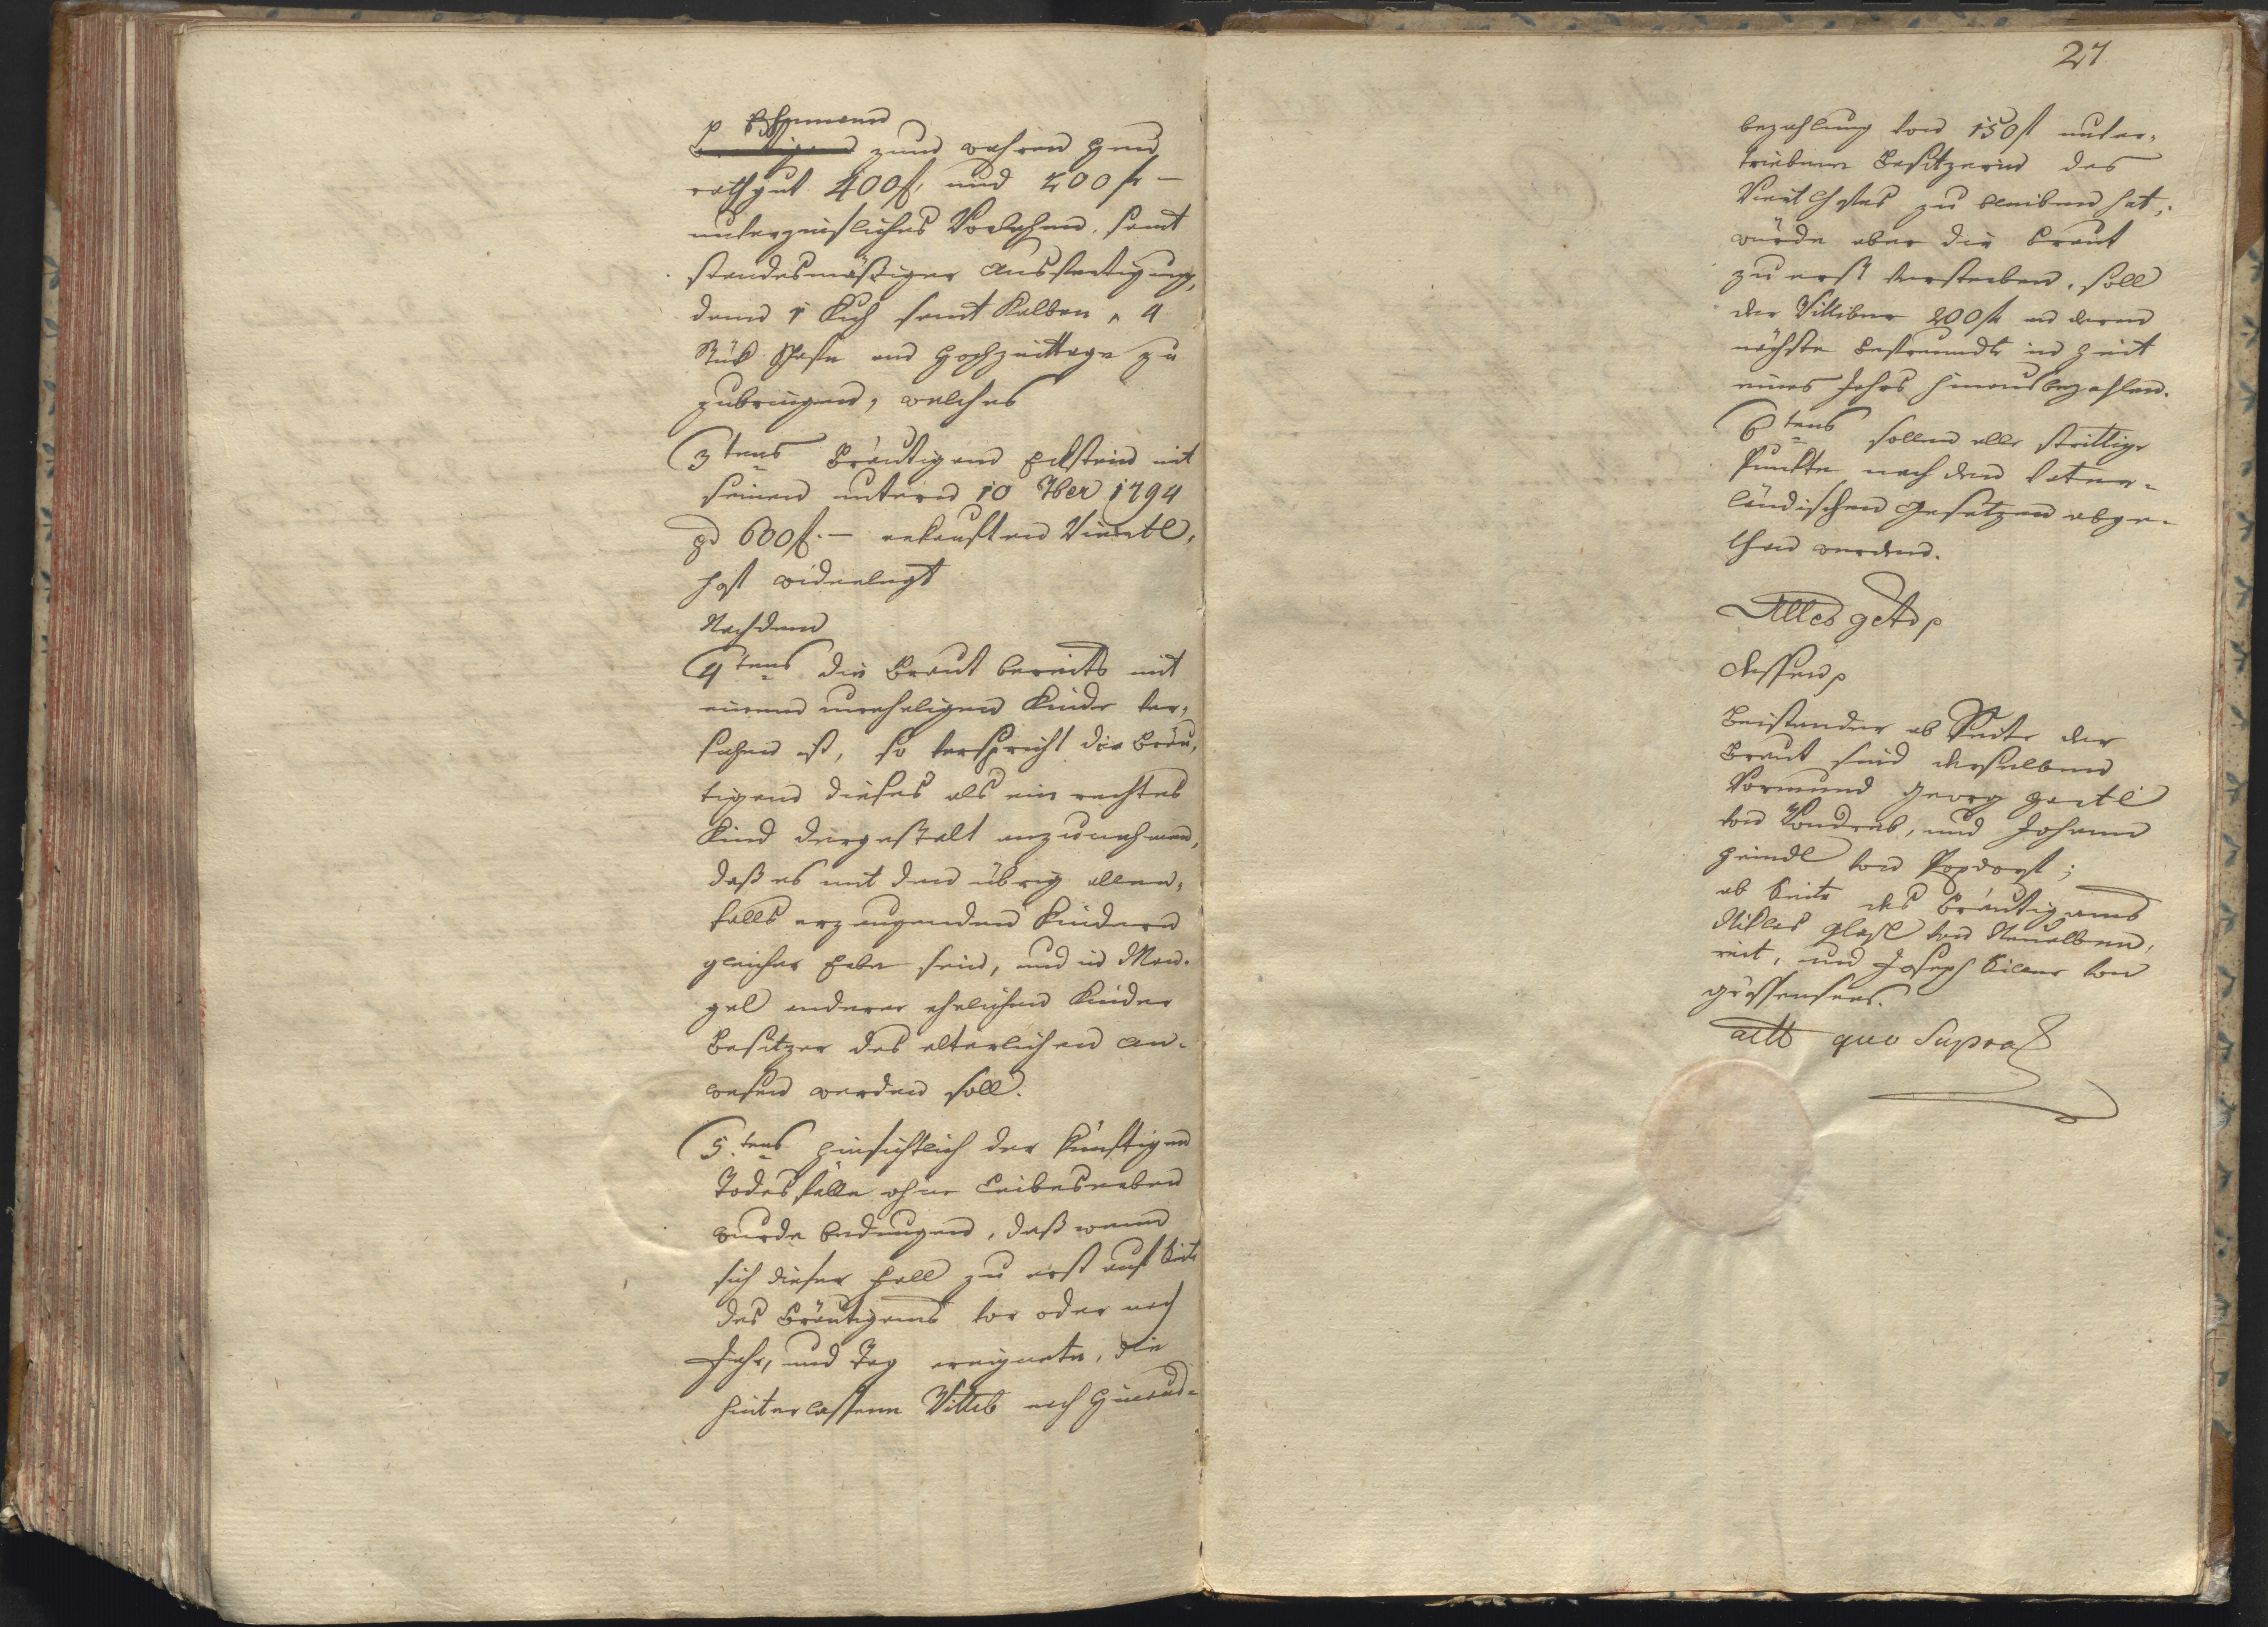 p Ehemann
zum wahren Heu
rathgut 400 f. und 200 f. —
unterzinsliches Vorlehen, samt
standesmäßiger Ausfertigung,
dann 1 Kuh samt Kalben, 4
Stük Schafe am Hochzeittage zu
zubringen, welches
3tens Bräutigam Eckstein mit
seinem unterm 10 7ber 1794
pr 600 f. — erkauften Viertl,
hof widerlegt
Nachdem
4tens die Braut bereits mit
einem uneheligen Kinde ver,
sehen ist, so verspricht der Bräu,
tigam dieses als ein rechtes
Kind dergestalt anzunehmen,
daß es mit den übrig allen,
falls erzeugenden Kindern
gleicher Erbe sein, und in Man-
gel anderer ehelichen Kinder
Besitzer des elterlichen An-
wesen werden soll.
5.tens Hinsichtlich der künftigen
Todesfälle ohne Leibeserben
wurde bedungen, daß wenn
sich dieser Fall zu erst auf Seite
des Bräutigams vor oder nach
Jahr, und Tag ereignete, die
hinterlassene Wittib nach Hinaus-
27
bezahlung von 150 f unver,
triebene Besitzerin des
Viertlhofes zu bleiben hat;
würde aber die Braut
zu erst versterben, soll
der Wittiber 200 f an deren
nächste Befreundte in Zeit
eines Jahrs hinausbezahlen.
6tens sollen alle strittige
Punkte nach den vater-
ländischen Gesetzen abge-
than werden.
Alles getr p
dessen p
Beistander ab Seite der
Braut sind derselben
Vormund Georg Härtl
von Wondreb, und Johann
Heindl von Poxdorf;
ab Seite des Bräutigams
Niklas Glasl von Neualben,
reit, und Joseph Silner von
Grossensees.
actt quo Supra